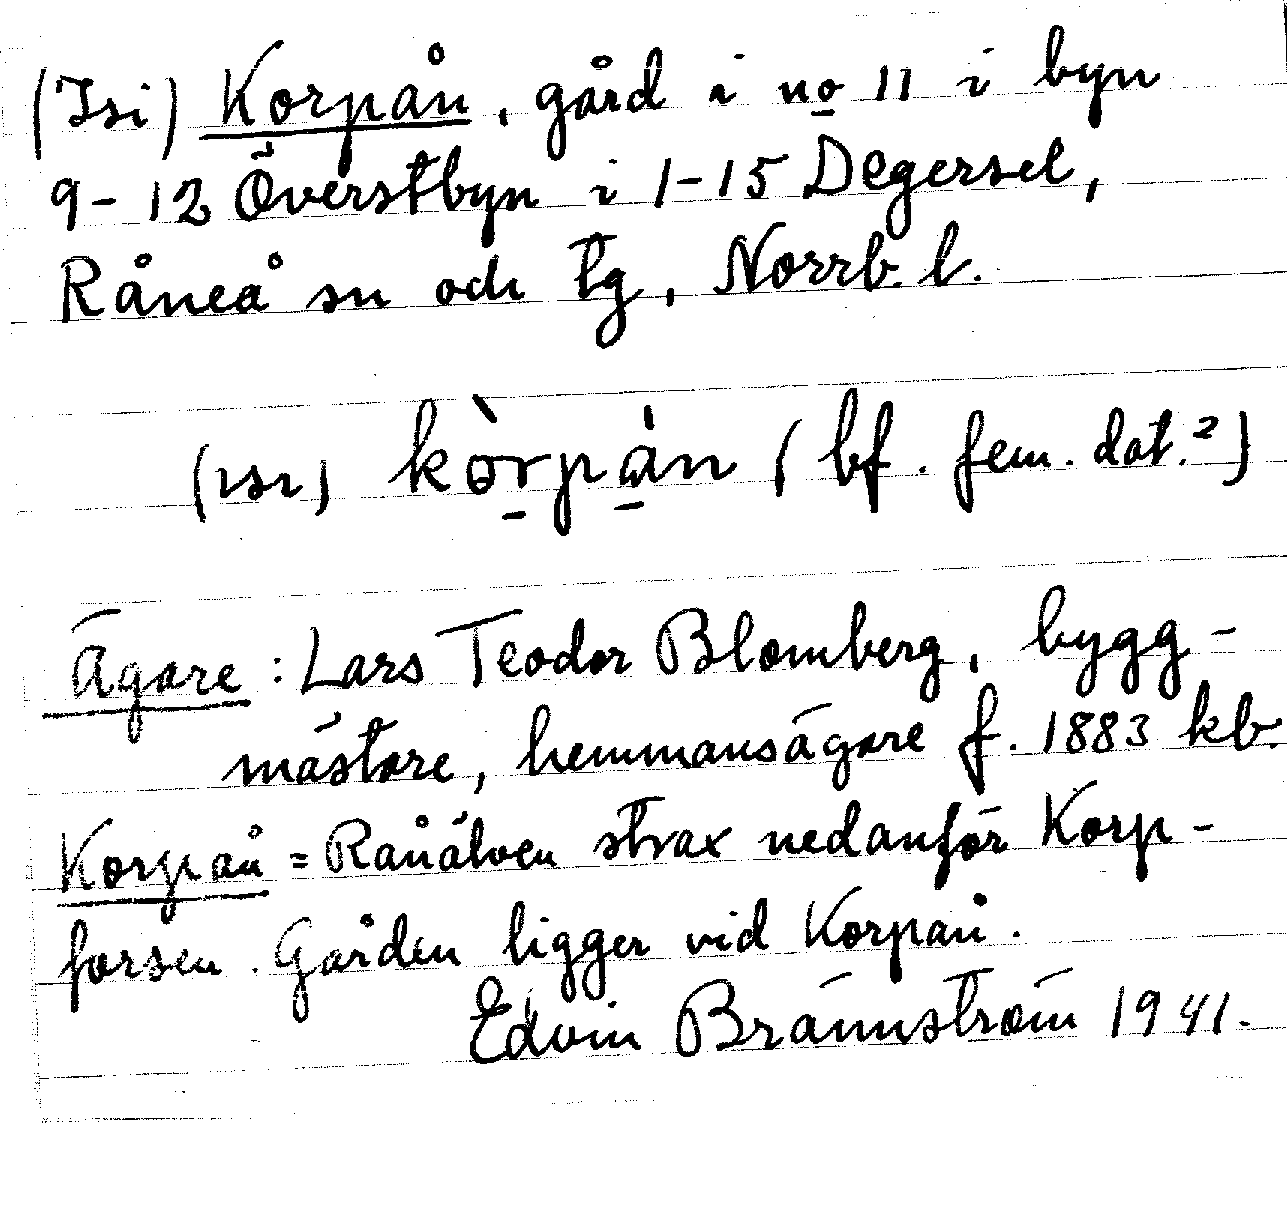 (Isi) Korpån, gård i no 11 i byn
9-12 Överstbyn i 1-15 Degersel,
Råneå sn och tg, Norrb. l.
(ısı) kòrpàn (bf. fem. dat.²)
Ägare: Lars Teodor Blomberg, bygg-
mästare, hemmansägare f. 1883 kb.
Korpån = Råneälven strax nedanför Korp-
forsen. Gården ligger vid Korpån.
Edvin Brännström 1941.